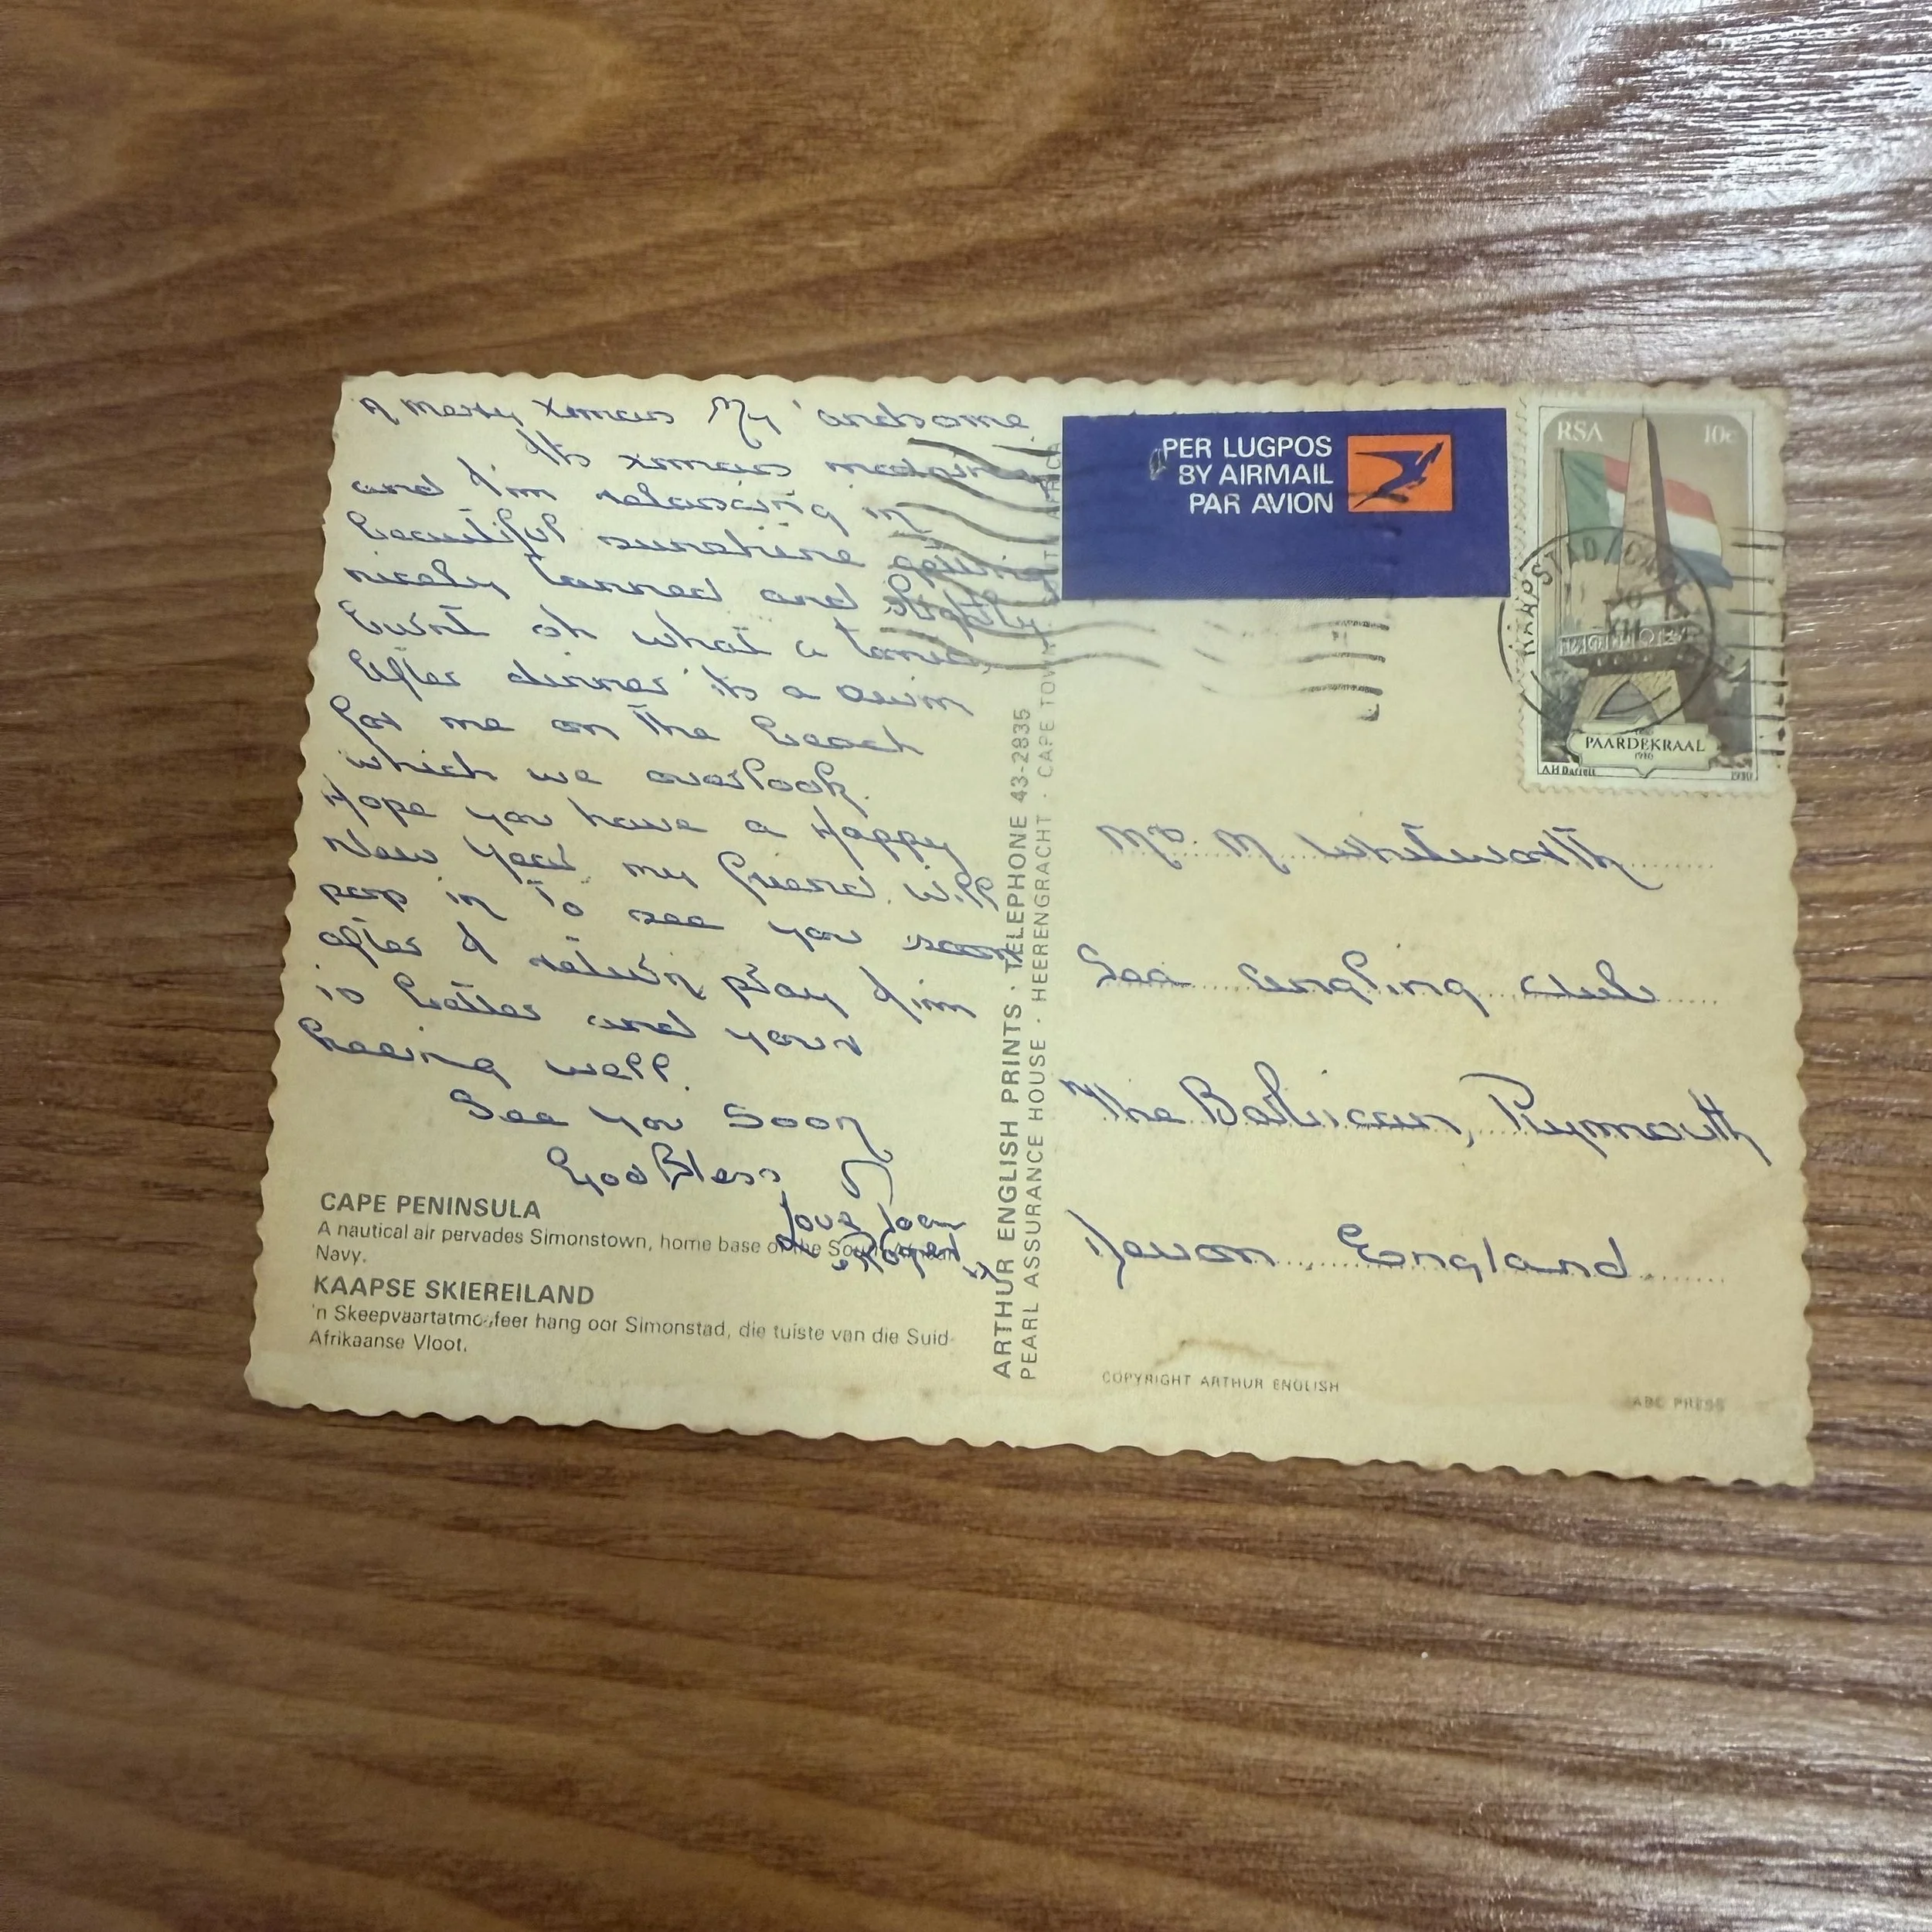 A merry Xmas My 'andsome
Its xmas morning
and I'm relaxing in
beautiful sunshine getting
nicely tanned and slightly
burnt oh what a
After dinner its a swim
for me on the beach
which we overlook.
Hope you have a Happy
New Year my friend. Will
pop in to see you soon
after I return pray Jim
is better and your
keeping well.
See You Soon
God Bless
Love Joan
& Roger
CAPE PENINSULA
A nautical air pervades Simonstown, home base of the South African
Navy.
KAAPSE SKIEREILAND
'n Skeepvaartatmosfeer hang oor Simonstad, die tuiste van die Suid-
Afrikaanse Vloot.
ARTHUR ENGLISH PRINTS · TELEPHONE 43-2835
PEARL ASSURANCE HOUSE · HEERENGRACHT · CAPE TOWN SOUTH AFRICA
PER LUGPOS
BY AIRMAIL
PAR AVION
RSA 10c
KAAPSTAD/CA
XII
PAARDEKRAAL
A.H.Barrett 1980
M Whitworth
Sea Angling Club
The Barbican, Plymouth
Devon, England.
COPYRIGHT ARTHUR ENGLISH
ABC PRESS